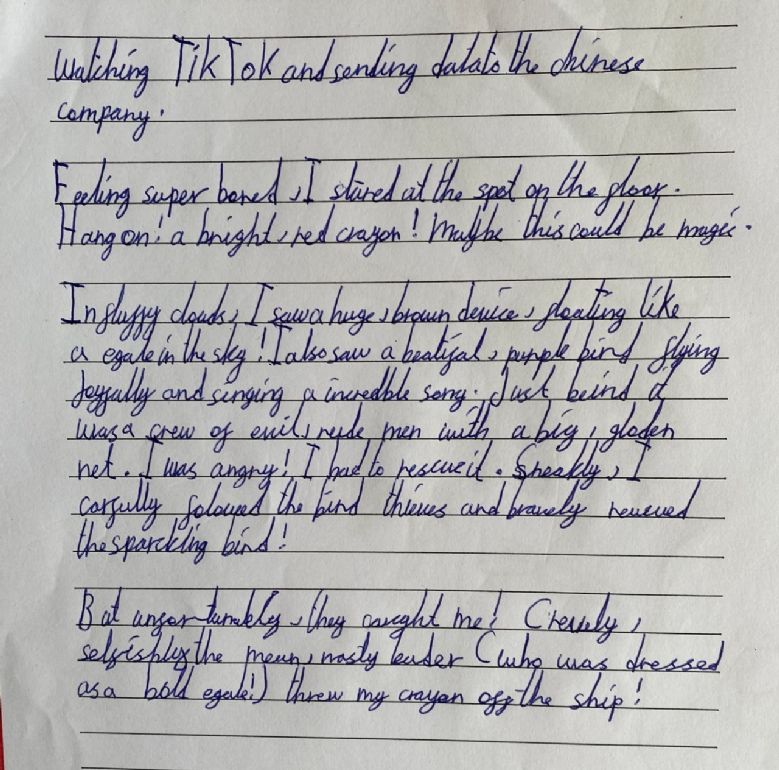 Watching TikTok and sending data to the chinese
company.
Feeling super bored, I stared at the spot on the floor.
Hang on! a bright, red crayon! Maybe this could be magic.
In fluffy clouds, I saw a huge, brown device, floating like
a egale in the sky! I also saw a beatifal, purple bird flying
Joyfally and singing a incredble song. Just beind it
was a crew of evil, rude men with a big, gloden
net. I was angry! I had to rescue it. Sneakly, I
carfully folowed the bird thieves and bravely rescued
the sparckling bird!
But unfortunakely, they caught me! Creuely,
selfishly the mean, nasty leader (who was dressed
as a bold egale!) threw my crayon off the ship!